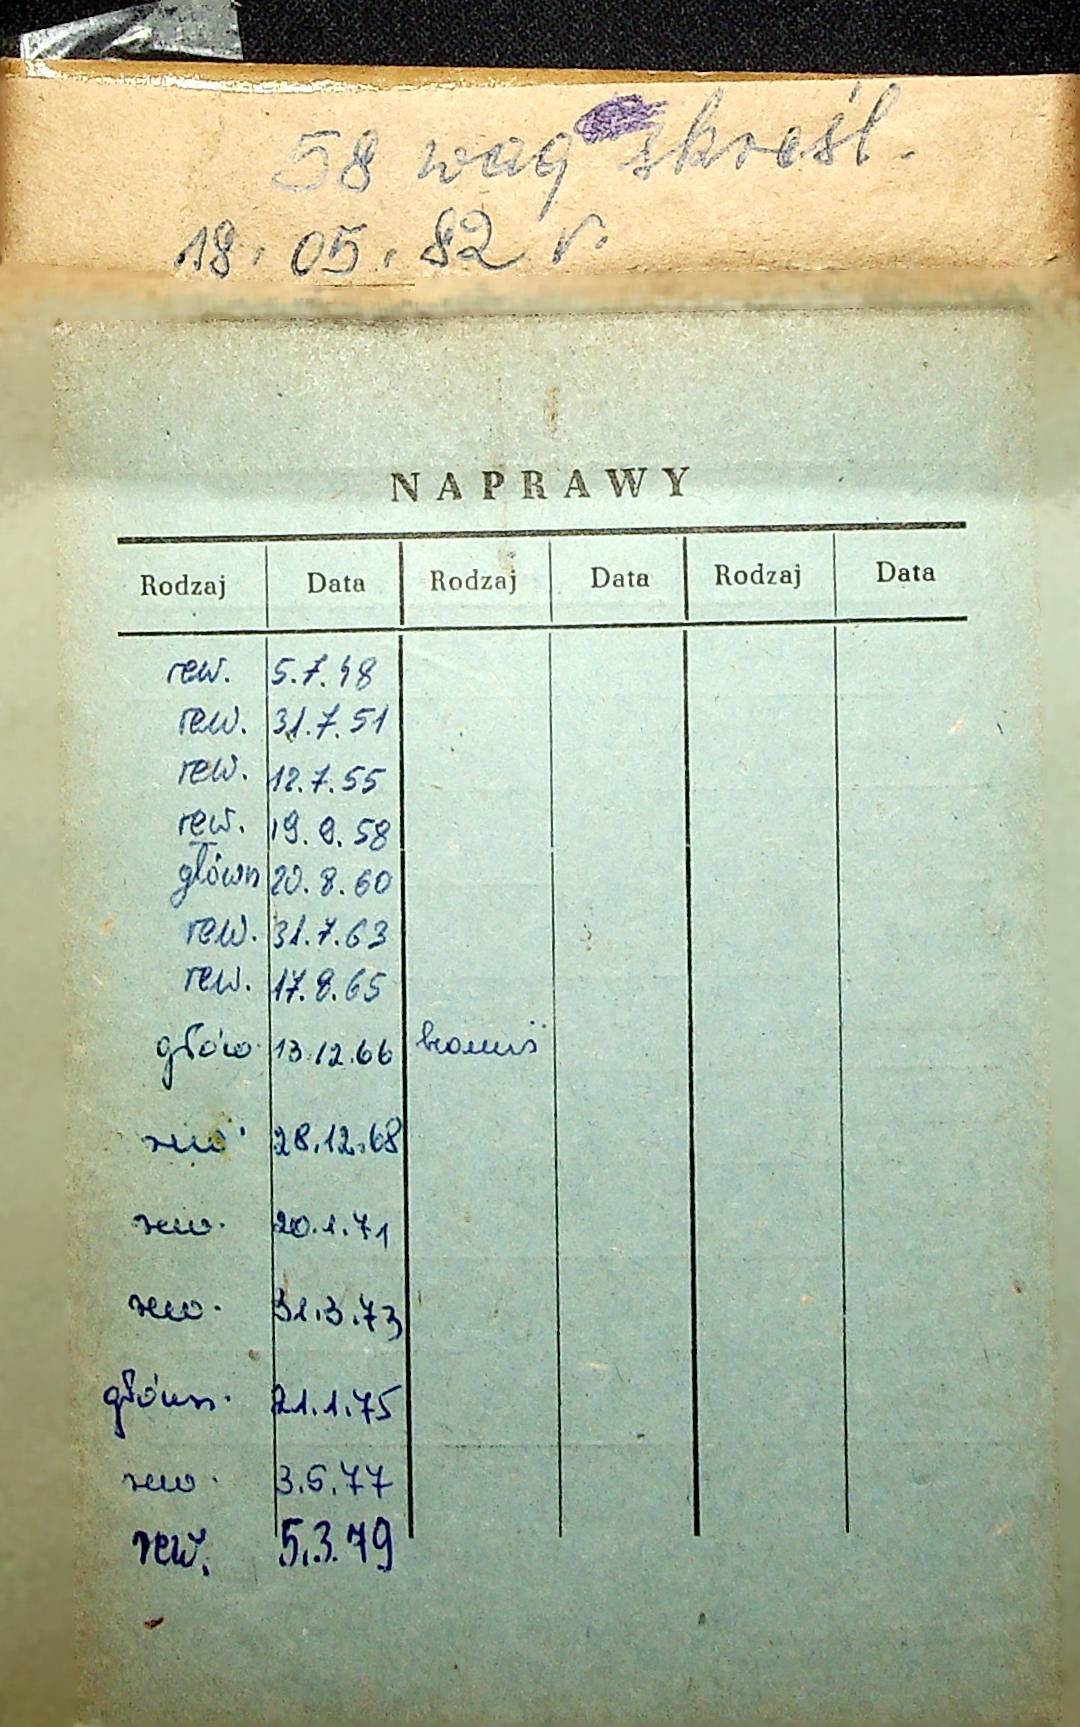 58 wag skreśl.
18.05.82 r.
NAPRAWY
Rodzaj Data Rodzaj Data Rodzaj Data
rew. 5.7.48
rew. 31.7.51
rew. 12.7.55
rew. 19.9.58
główn 20.8.60
rew. 31.7.63
rew. 17.8.65
głów. 13.12.66
rew. 28.12.68
rew. 20.1.71
rew. 31.3.73
główn. 21.1.75
rew. 3.5.77
rew. 5.3.79